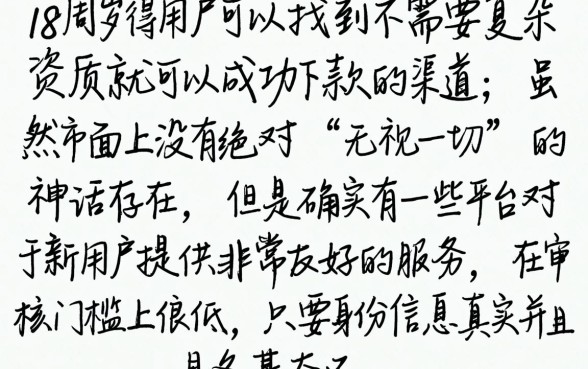 18周岁得用户可以找到不需要复杂
资质就可以成功下款的渠道；虽
然市面上没有绝对“无视一切”的
神话存在，但是确实有一些平台对
于新用户提供非常友好的服务，在审
核门槛上很低，只要身份信息真实并且